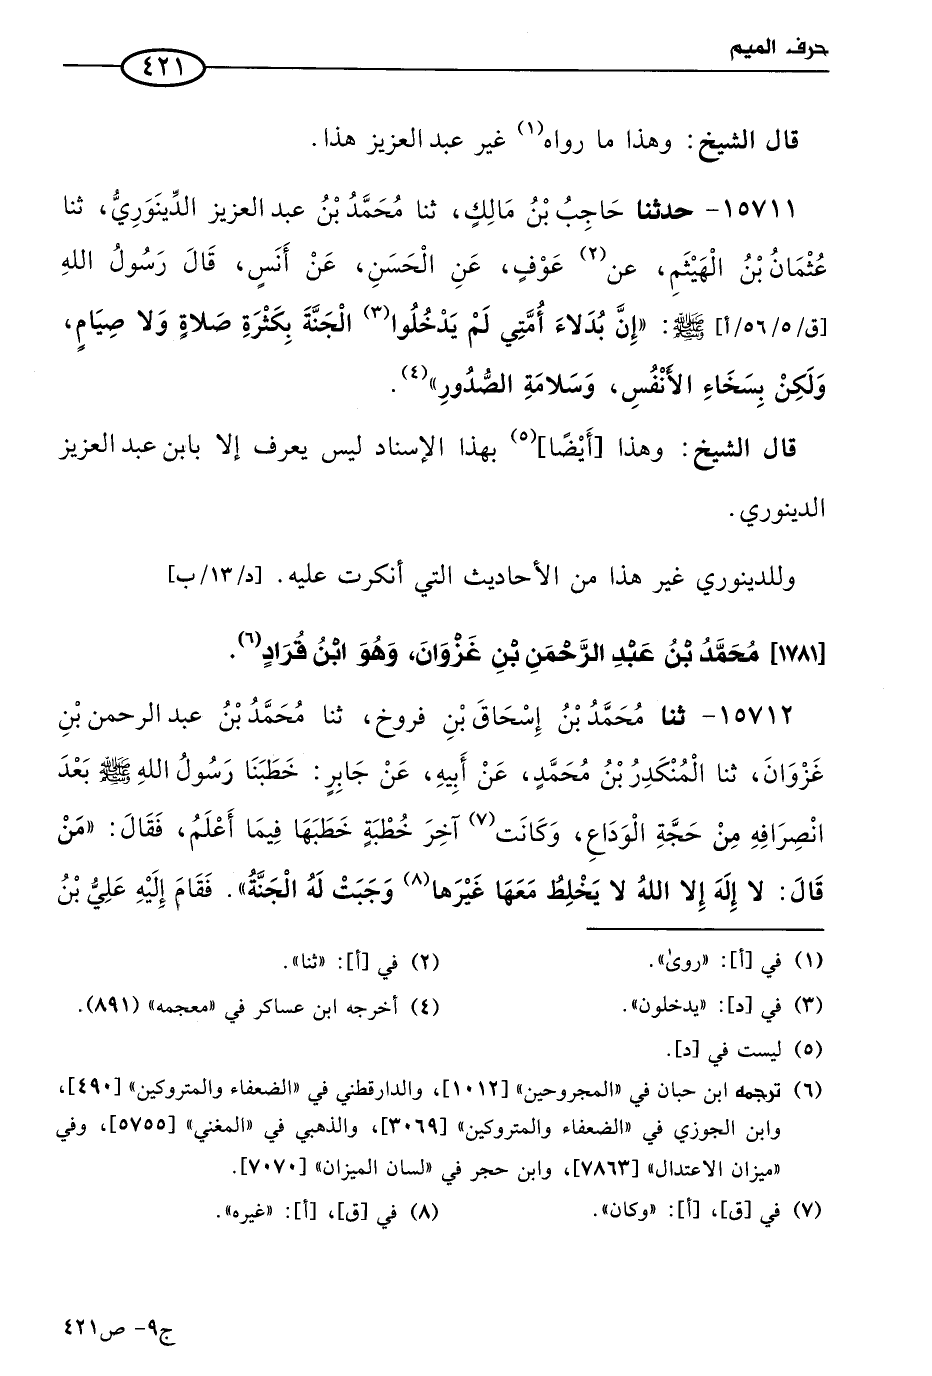 حرف الميم
٤٢١
قال الشيخ: وهذا ما رواه(١) غير عبد العزيز هذا.
١٥٧١١- حدثنا حَاجِبُ بْنُ مَالِكٍ، ثنا مُحَمَّدُ بْنُ عبد العزيز الدِّينَوَرِيُّ، ثنا
عُثْمَانُ بْنُ الْهَيْثَمِ، عن(٢) عَوْفٍ، عَنِ الْحَسَنِ، عَنْ أَنَسٍ، قَالَ رَسُولُ اللهِ
[ق/٥/٥٦/أ] ﷺ: «إِنَّ بُدَلاءَ أُمَّتِي لَمْ يَدْخُلُوا(٣) الْجَنَّةَ بِكَثْرَةِ صَلاةٍ وَلا صِيَامٍ،
وَلَكِنْ بِسَخَاءِ الأَنْفُسِ، وَسَلامَةِ الصُّدُورِ»(٤).
قال الشيخ: وهذا [أَيْضًا](٥) بهذا الإسناد ليس يعرف إلا بابن عبد العزيز
الدينوري.
وللدينوري غير هذا من الأحاديث التي أنكرت عليه. [د/١٣/ب]
[١٧٨١] مُحَمَّدُ بْنُ عَبْدِ الرَّحْمَنِ بْنِ غَزْوَانَ، وَهُوَ ابْنُ قُرَادٍ(٦).
١٥٧١٢- ثنا مُحَمَّدُ بْنُ إِسْحَاقَ بْنِ فروخ، ثنا مُحَمَّدُ بْنُ عبد الرحمن بْنِ
غَزْوَانَ، ثنا الْمُنْكَدِرُ بْنُ مُحَمَّدٍ، عَنْ أَبِيهِ، عَنْ جَابِرٍ: خَطَبَنَا رَسُولُ اللهِ ﷺ بَعْدَ
انْصِرَافِهِ مِنْ حَجَّةِ الْوَدَاعِ، وَكَانَت(٧) آخِرَ خُطْبَةٍ خَطَبَهَا فِيمَا أَعْلَمُ، فَقَالَ: «مَنْ
قَالَ: لا إِلَهَ إِلا اللهُ لا يَخْلِطُ مَعَهَا غَيْرَها(٨) وَجَبَتْ لَهُ الْجَنَّةُ». فَقَامَ إِلَيْهِ عَلِيُّ بْنُ
(١) في [أ]: «روىٰ». (٢) في [أ]: «ثنا».
(٣) في [د]: «يدخلون». (٤) أخرجه ابن عساكر في «معجمه» (٨٩١).
(٥) ليست في [د].
(٦) ترجمه ابن حبان في «المجروحين» [١٠١٢]، والدارقطني في «الضعفاء والمتروكين» [٤٩٠]،
وابن الجوزي في «الضعفاء والمتروكين» [٣٠٦٩]، والذهبي في «المغني» [٥٧٥٥]، وفي
«ميزان الاعتدال» [٧٨٦٣]، وابن حجر في «لسان الميزان» [٧٠٧٠].
(٧) في [ق]، [أ]: «وكان». (٨) في [ق]، [أ]: «غيره».
ج٩- ص٤٢١